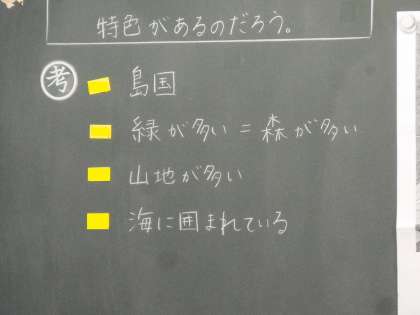 特色があるのだろう。
考
島国
緑が多い = 森が多い
山地が多い
海に囲まれている